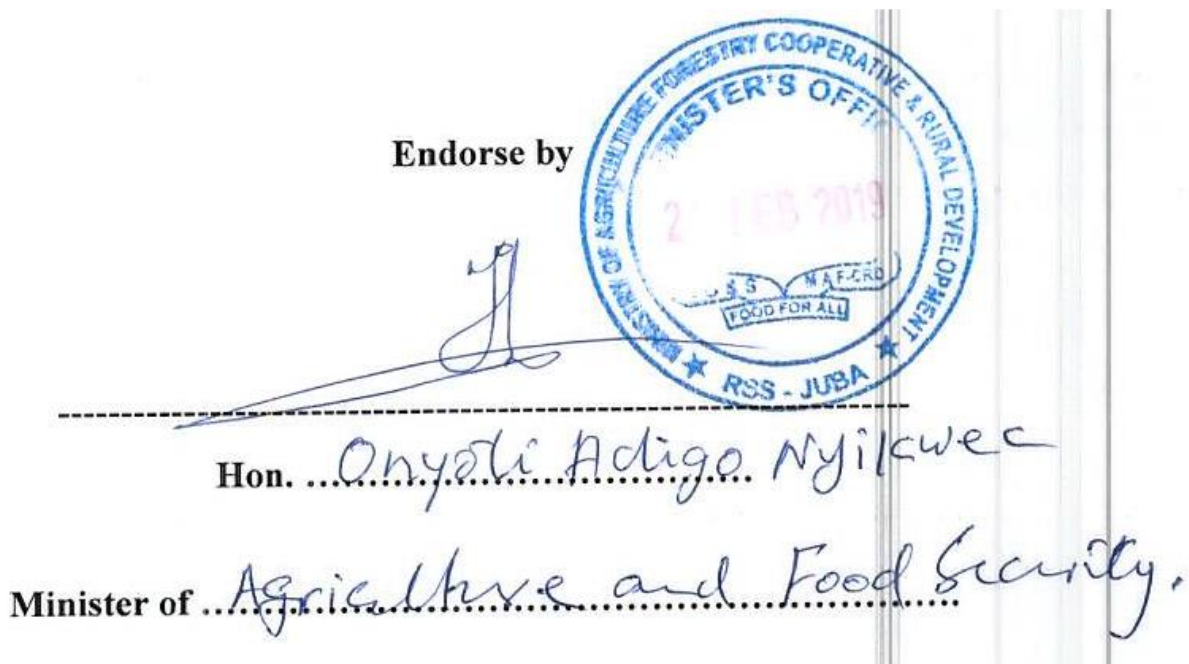 Endorse by
MINISTRY OF AGRICULTURE FORESTRY COOPERATIVE & RURAL DEVELOPMENT
RSS - JUBA
FEB 2019
MAF-CRD
FOOD FOR ALL
Hon. Onyoti Adigo Nyikwec
Minister of Agriculture and Food Security.